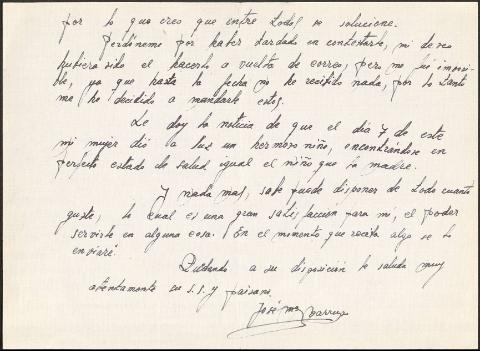 por lo que creo que entre todos se solucione.
Perdóneme por haber tardado en contestarle, mi deseo
hubiera sido el hacerlo a vuelta de correo, pero me fué imposi-
ble, ya que hasta la fecha no he recibido nada, por lo tanto
me he decidido a mandarle estos.
Le doy la noticia de que el día 7 de este
mi mujer dió a luz un hermoso niño, encontrándose en
perfecto estado de salud igual el niño que la madre.
Y nada mas, sabe puede disponer de todo cuanto
guste, lo cual es una gran satisfacción para mi, el poder
servirle en alguna cosa. En el momento que reciba algo se lo
enviaré.
Quedando a su disposición le saluda muy
atentamente su s.s. y paisano
José Mª